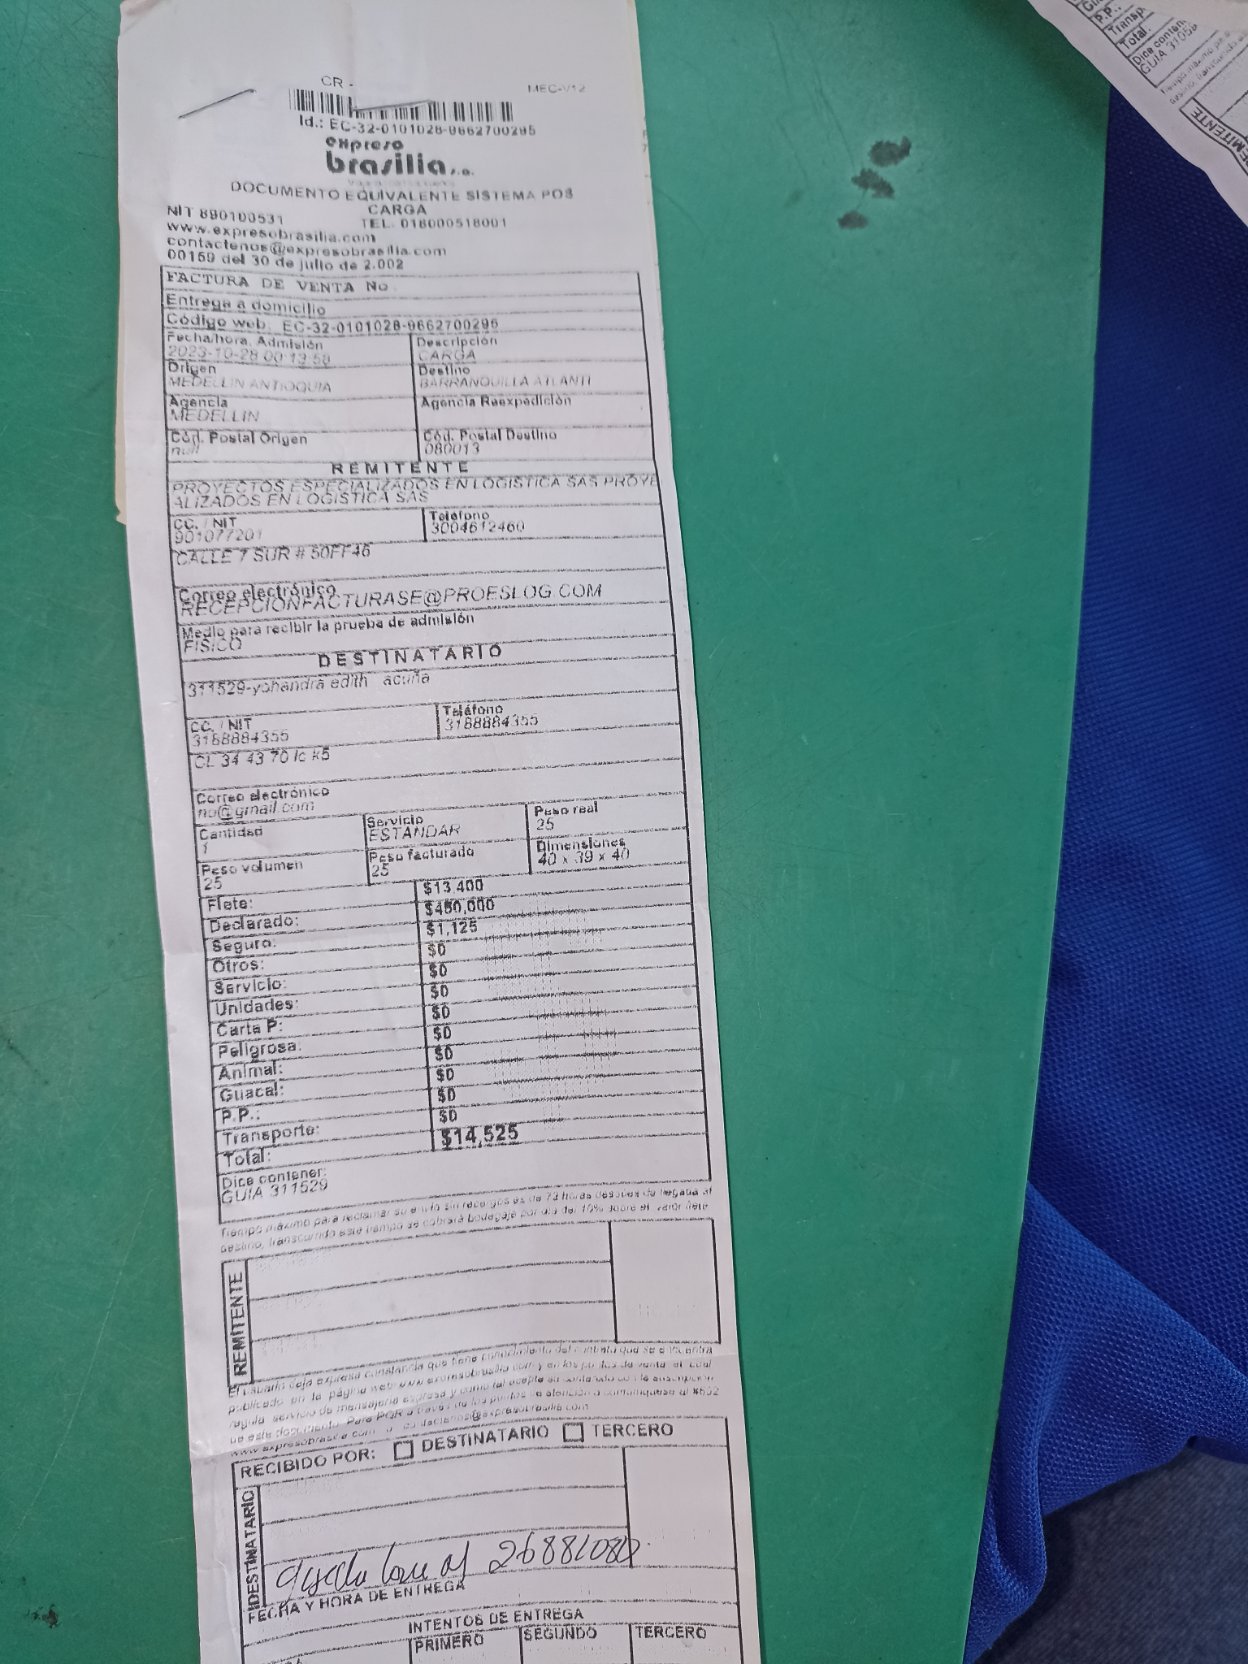 CR -
MEC-V12
Id.: EC-32-0101028-9662700295
expreso
brasilia s.a.
DOCUMENTO EQUIVALENTE SISTEMA POS
CARGA
NIT 890100531
TEL. 018000518001
www.expresobrasilia.com
contactenos@expresobrasilia.com
00159 del 30 de julio de 2.002
FACTURA DE VENTA No
Entrega a domicilio
Código web. EC-32-0101028-9662700295
Fecha/hora. Admisión
2023-10-28 00:13:58
Descripción
CARGA
Origen
MEDELLIN ANTIOQUIA
Destino
BARRANQUILLA ATLANTI
Agencia
MEDELLIN
Agencia Reexpedición
Cód. Postal Origen
null
Cód. Postal Destino
080013
REMITENTE
PROYECTOS ESPECIALIZADOS EN LOGISTICA SAS PROYE
ALIZADOS EN LOGISTICA SAS
CC. / NIT
901077201
Teléfono
3004612460
CALLE 7 SUR # 50FF46
Correo electrónico
RECEPCIONFACTURASE@PROESLOG.COM
Medio para recibir la prueba de admisión
FISICO
DESTINATARIO
311529-yohandra edith acuña
CC. / NIT
3188884355
Teléfono
3188884355
CL 34 43 70 lc k5
Correo electrónico
no@gmail.com
Cantidad
1
Servicio
ESTANDAR
Peso real
25
Peso volumen
25
Peso facturado
25
Dimensiones
40 x 39 x 40
Flete: $13,400
Declarado: $450,000
Seguro: $1,125
Otros: $0
Servicio: $0
Unidades: $0
Carta P: $0
Peligrosa: $0
Animal: $0
Guacal: $0
P.P.: $0
Transporte: $0
Total: $14,525
Dice contener:
GUIA 311529
Tiempo máximo para reclamar su envío sin recargos es de 72 horas después de llegada al
destino, transcurrido este tiempo se cobrará bodegaje por día del 10% sobre el valor flete
REMITENTE
El usuario deja expresa constancia que tiene conocimiento del contrato que se encuentra
publicado en la página web www.expresobrasilia.com y en los puntos de venta el cual
regula servicio de mensajería expresa y
de este documento. Para PQR
www.expresobrasilia.com
RECIBIDO POR: DESTINATARIO TERCERO
DESTINATARIO
FECHA Y HORA DE ENTREGA
INTENTOS DE ENTREGA
PRIMERO SEGUNDO TERCERO
P.P.:
Transp
Total:
Dice conten
REMITENTE